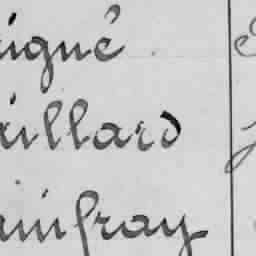 igné
aillard
ainfray